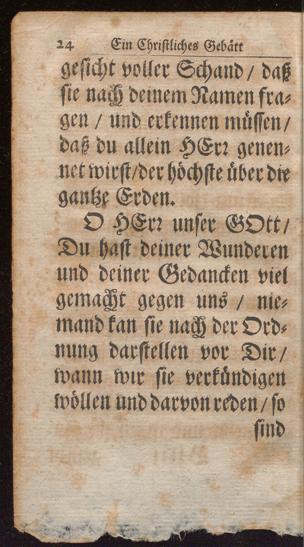 24 Ein Christliches Gebätt
gesicht voller Schand / daß
sie nach deinem Namen fra-
gen / und erkennen müssen /
daß du allein HErr genen-
net wirst / der höchste über die
gantze Erden.
O HErr unser GOtt /
Du hast deiner Wunderen
und deiner Gedancken viel
gemacht gegen uns / nie-
mand kan sie nach der Ord-
nung darstellen vor Dir /
wann wir sie verkündigen
wöllen und darvon reden / so
sind